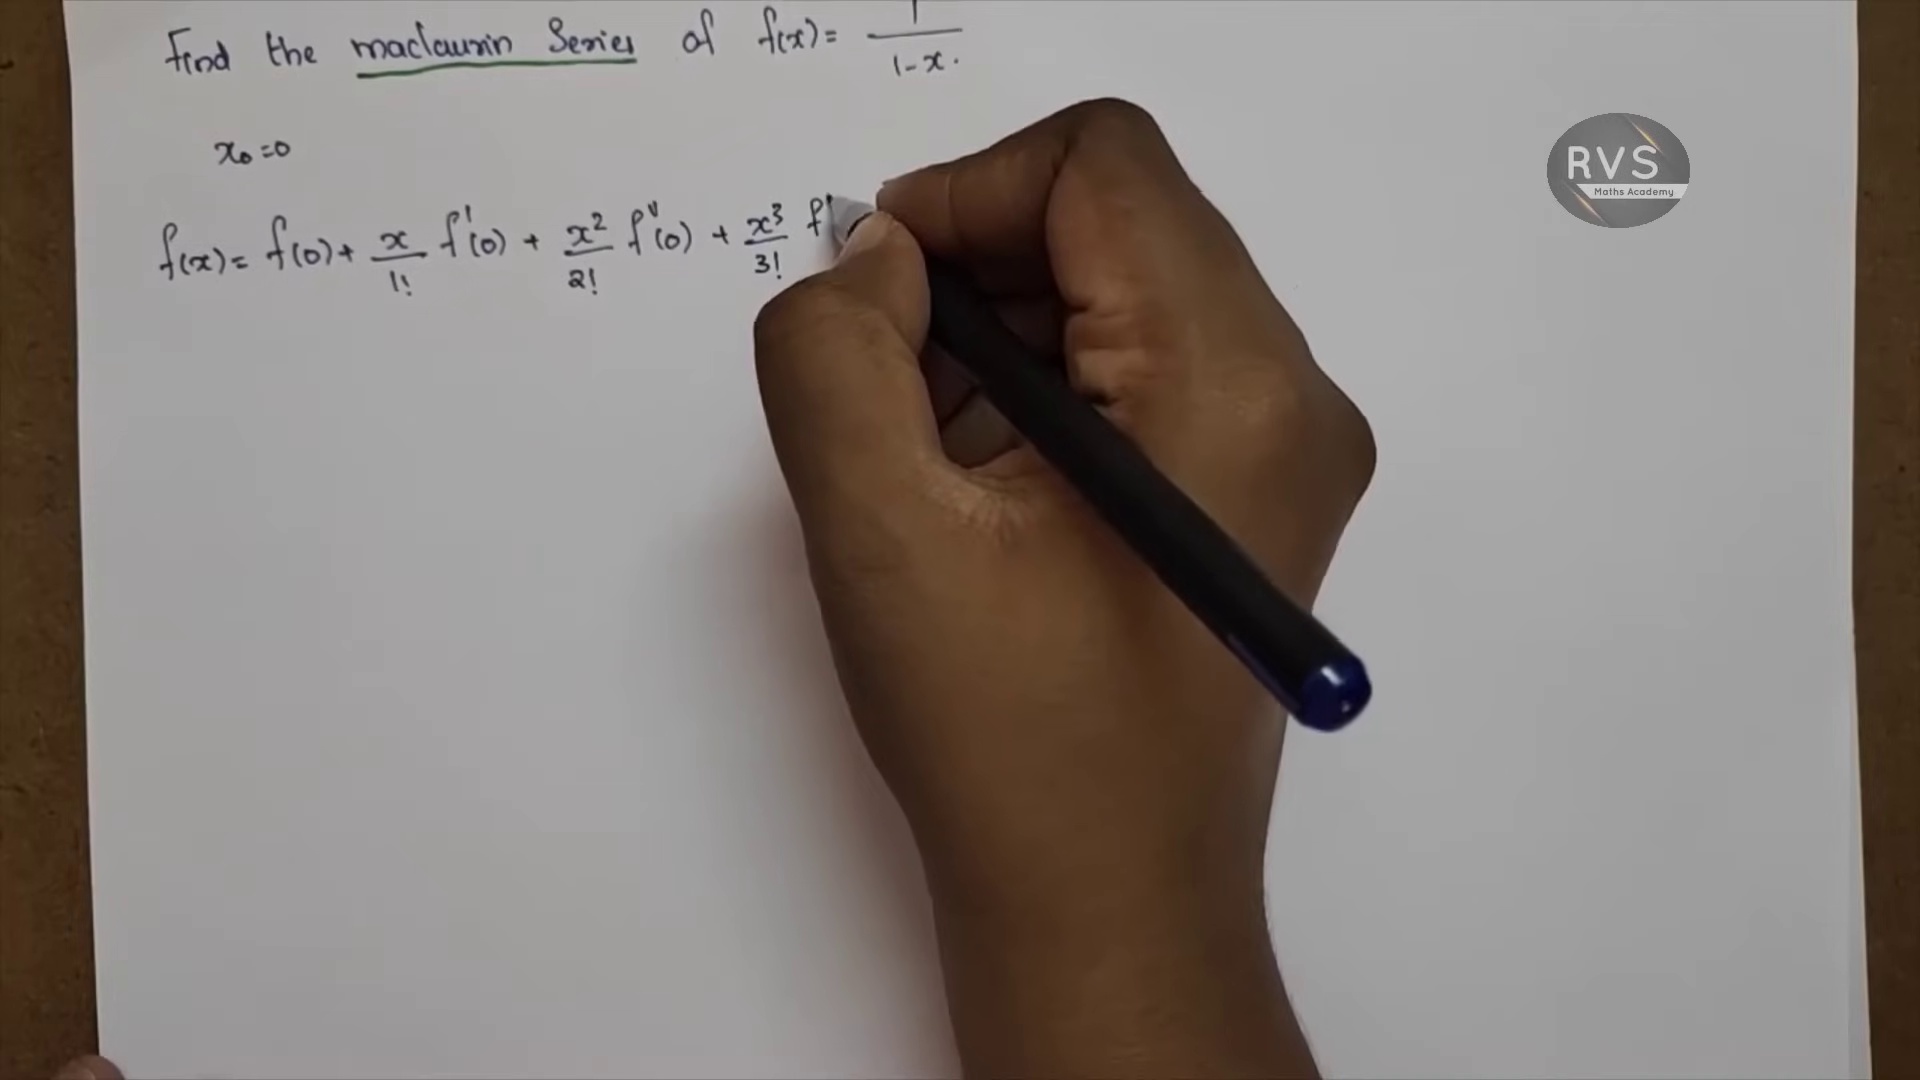 Find the maclaurin Series of f(x) = 1/1-x.
x₀=0
f(x) = f(0) + x/1! f'(0) + x²/2! f''(0) + x³/3! f'
RVS
Maths Academy